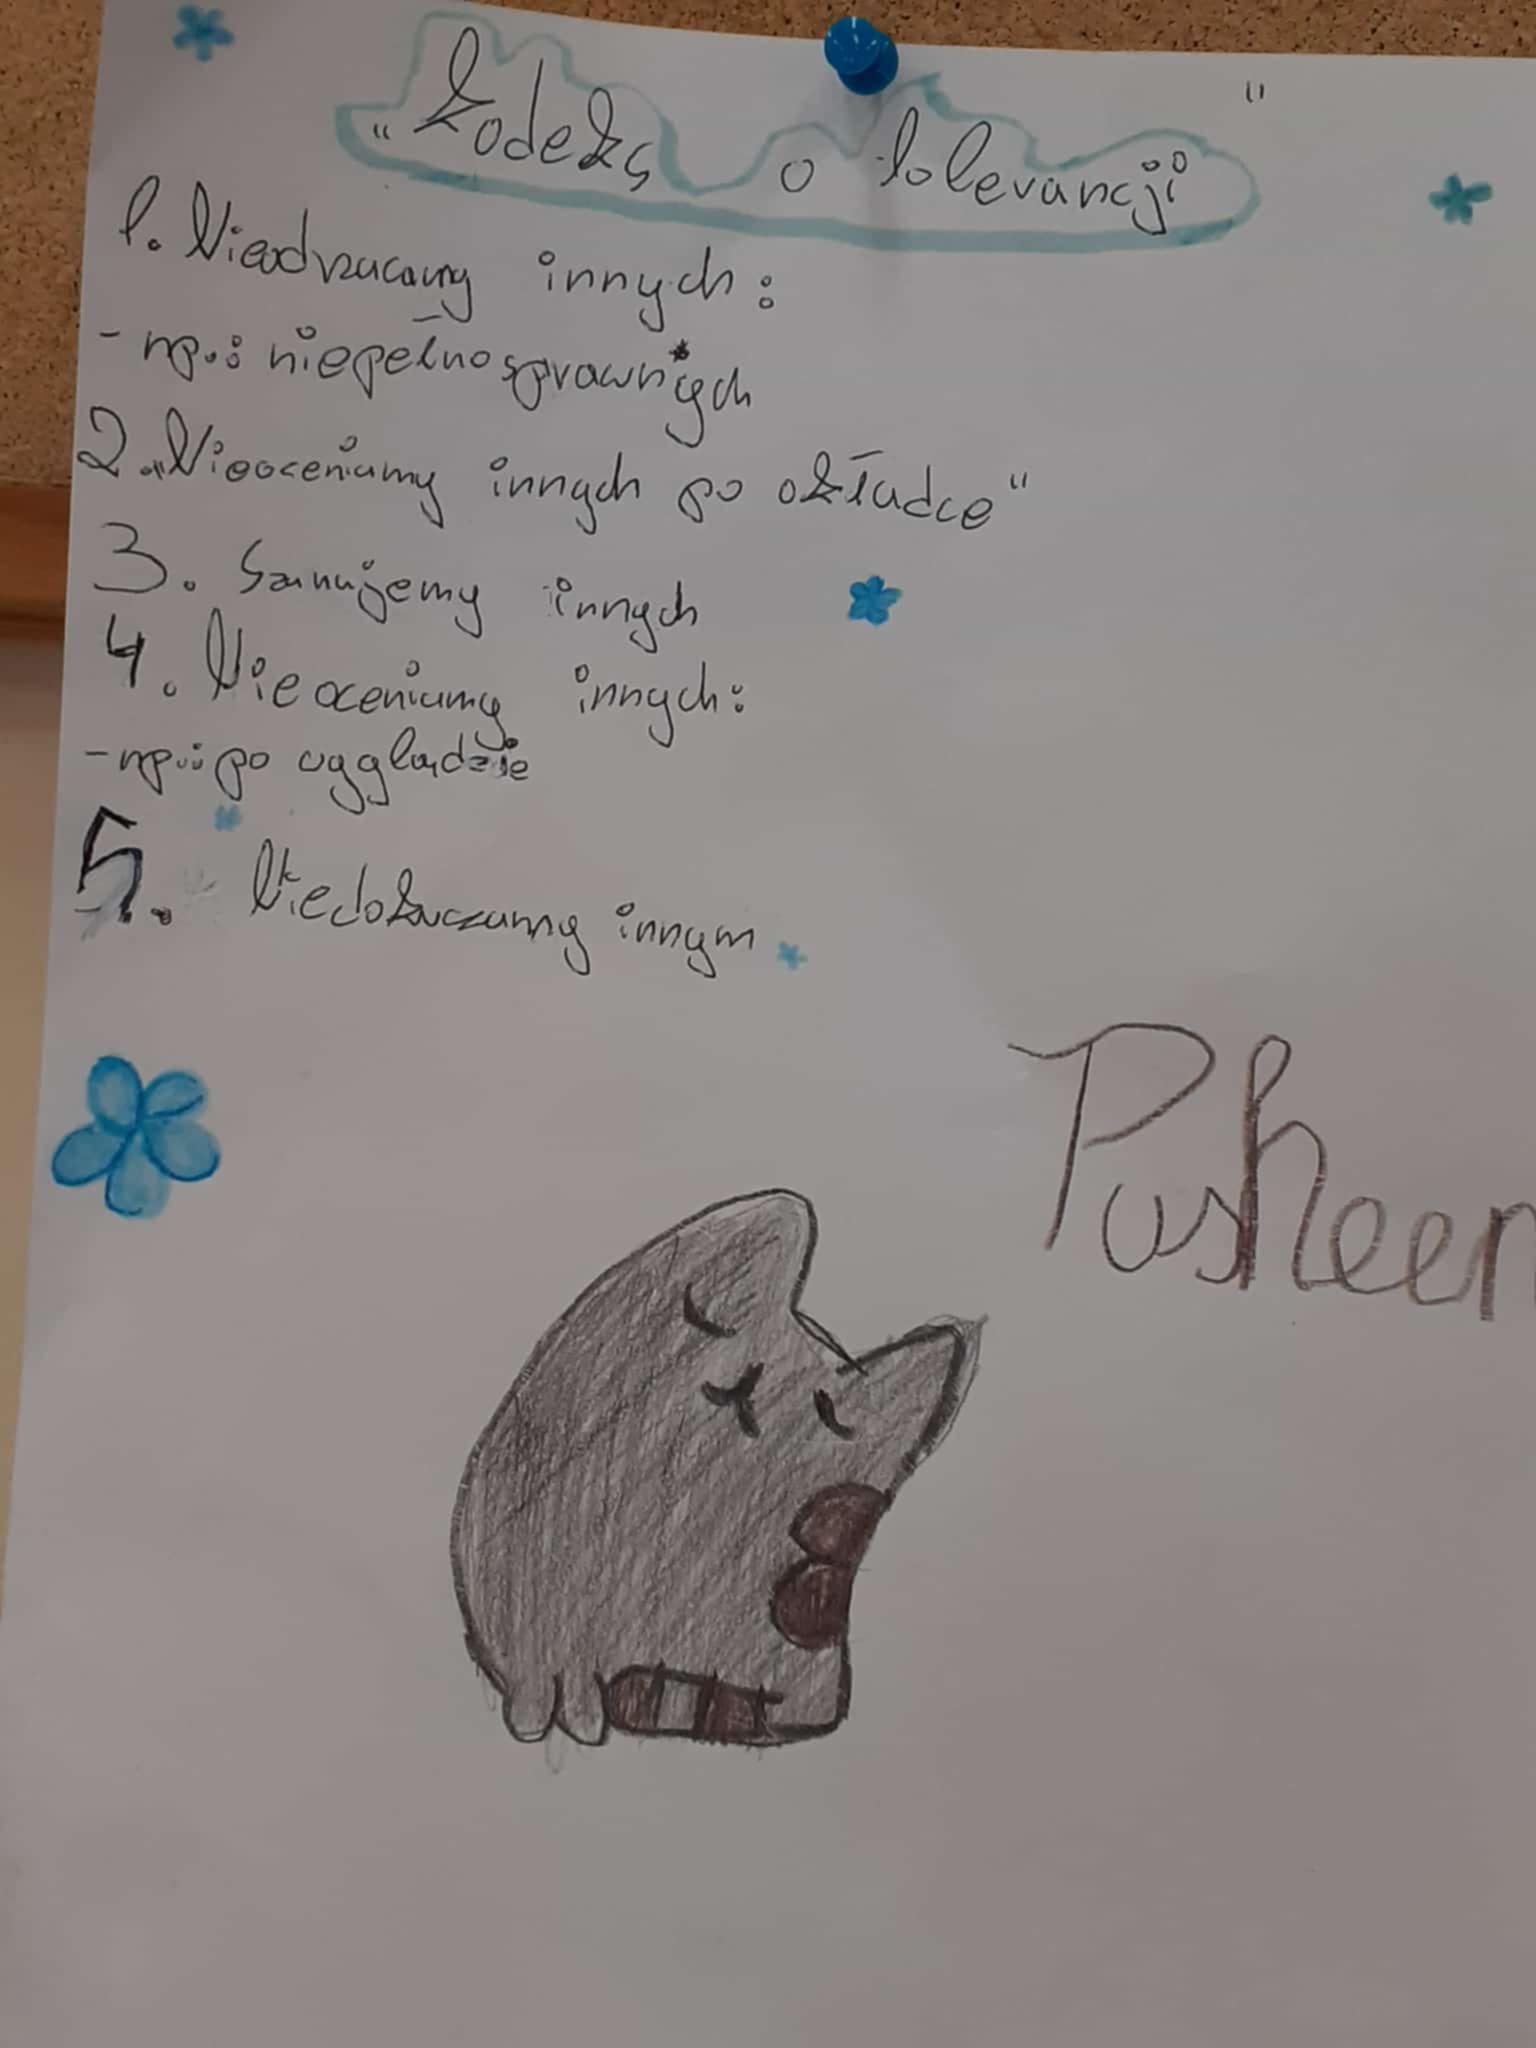 "Kodeks o tolerancji"
1. Nieodrzucamy innych:
- np.: niepełnosprawnych
2. "Nieoceniamy innych po okładce"
3. Szanujemy innych
4. Nie oceniamy innych:
- np.: po wyglądzie
5. Niedokuczamy innym
Pusheen